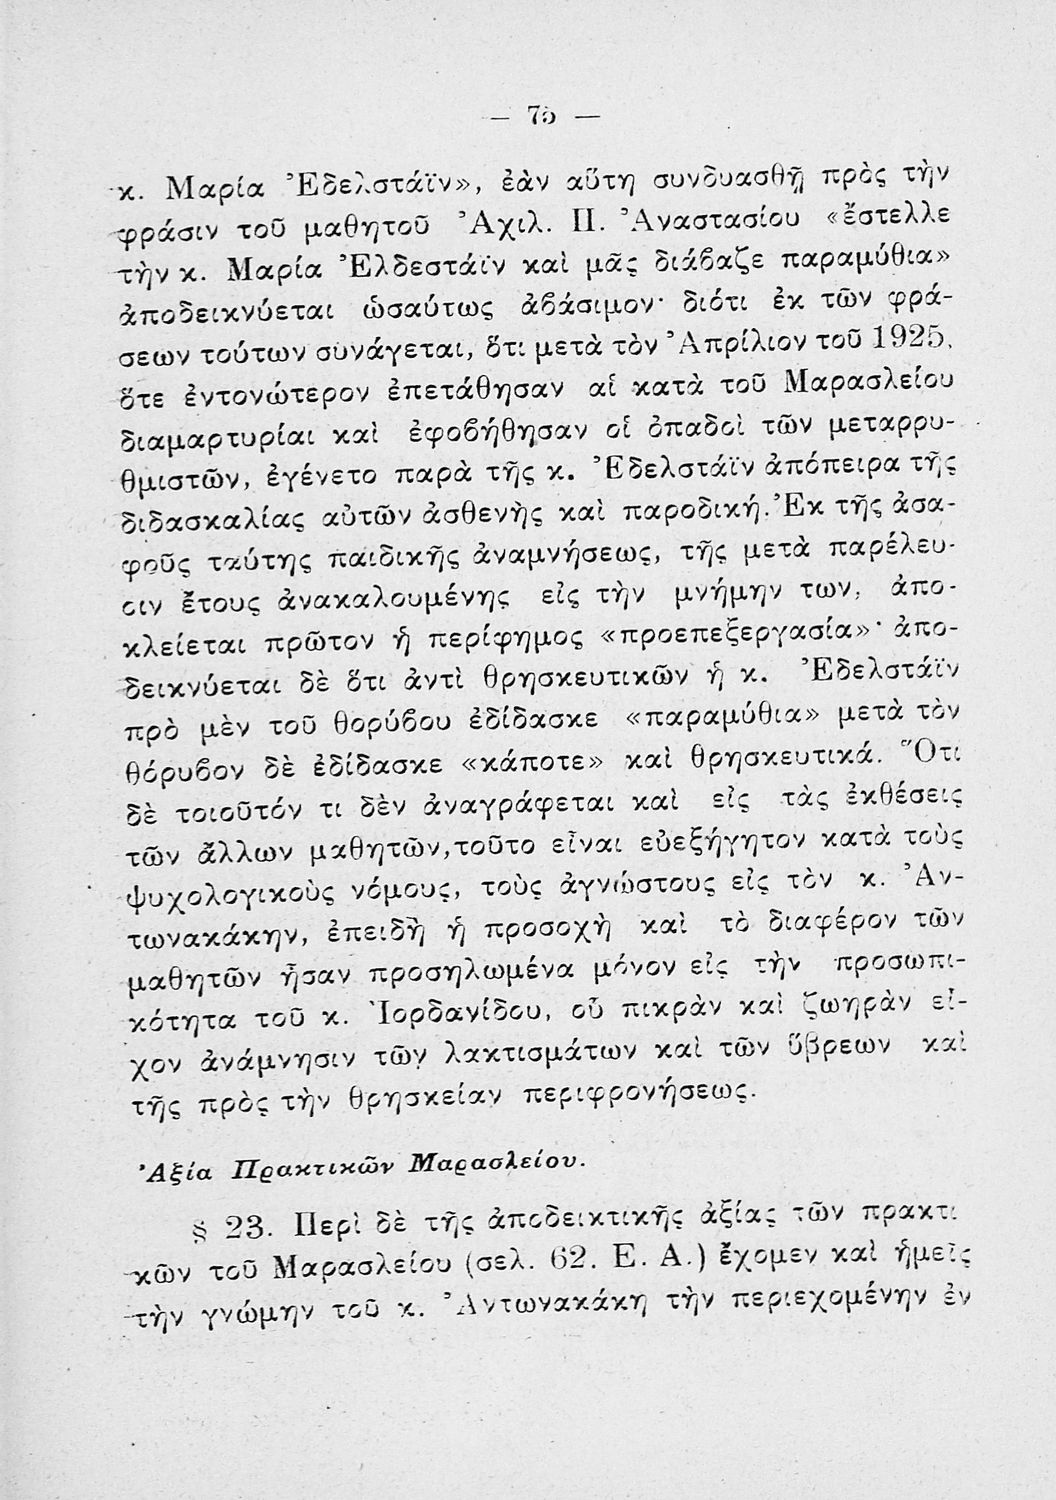 — 75 —
κ. Μαρία Ἐδελστάϊν», ἐὰν αὕτη συνδυασθῇ πρὸς τὴν
φράσιν τοῦ μαθητοῦ Ἀχιλ. Π. Ἀναστασίου «ἔστελλε
τὴν κ. Μαρία Ἐλδεστάϊν καὶ μᾶς διάβαζε παραμύθια»
ἀποδεικνύεται ὡσαύτως ἀβάσιμον· διότι ἐκ τῶν φρά-
σεων τούτων συνάγεται, ὅτι μετὰ τὸν Ἀπρίλιον τοῦ 1925,
ὅτε ἐντονώτερον ἐπετάθησαν αἱ κατὰ τοῦ Μαρασλείου
διαμαρτυρίαι καὶ ἐφοβήθησαν οἱ ὀπαδοὶ τῶν μεταρρυ-
θμιστῶν, ἐγένετο παρὰ τῆς κ. Ἐδελστάϊν ἀπόπειρα τῆς
διδασκαλίας αὐτῶν ἀσθενὴς καὶ παροδική. Ἐκ τῆς ἀσα-
φοῦς ταύτης παιδικῆς ἀναμνήσεως, τῆς μετὰ παρέλευ-
σιν ἔτους ἀνακαλουμένης εἰς τὴν μνήμην των, ἀπο-
κλείεται πρῶτον ἡ περίφημος «προεπεξεργασία»· ἀπο-
δεικνύεται δὲ ὅτι ἀντὶ θρησκευτικῶν ἡ κ. Ἐδελστάϊν
πρὸ μὲν τοῦ θορύβου ἐδίδασκε «παραμύθια» μετὰ τὸν
θόρυβον δὲ ἐδίδασκε «κάποτε» καὶ θρησκευτικά. Ὅτι
δὲ τοιοῦτόν τι δὲν ἀναγράφεται καὶ εἰς τὰς ἐκθέσεις
τῶν ἄλλων μαθητῶν, τοῦτο εἶναι εὐεξήγητον κατὰ τοὺς
ψυχολογικοὺς νόμους, τοὺς ἀγνώστους εἰς τὸν κ. Ἀν-
τωνακάκην, ἐπειδὴ ἡ προσοχὴ καὶ τὸ διαφέρον τῶν
μαθητῶν ἦσαν προσηλωμένα μόνον εἰς τὴν προσωπι-
κότητα τοῦ κ. Ἰορδανίδου, οὗ πικρὰν καὶ ζωηρὰν εἶ-
χον ἀνάμνησιν τῶν λακτισμάτων καὶ τῶν ὕβρεων καὶ
τῆς πρὸς τὴν θρησκείαν περιφρονήσεως.
Ἀξία Πρακτικῶν Μαρασλείου.
§ 23. Περὶ δὲ τῆς ἀποδεικτικῆς ἀξίας τῶν πρακτι
κῶν τοῦ Μαρασλείου (σελ. 62. Ε. Α.) ἔχομεν καὶ ἡμεῖς
τὴν γνώμην τοῦ κ. Ἀντωνακάκη τὴν περιεχομένην ἐν